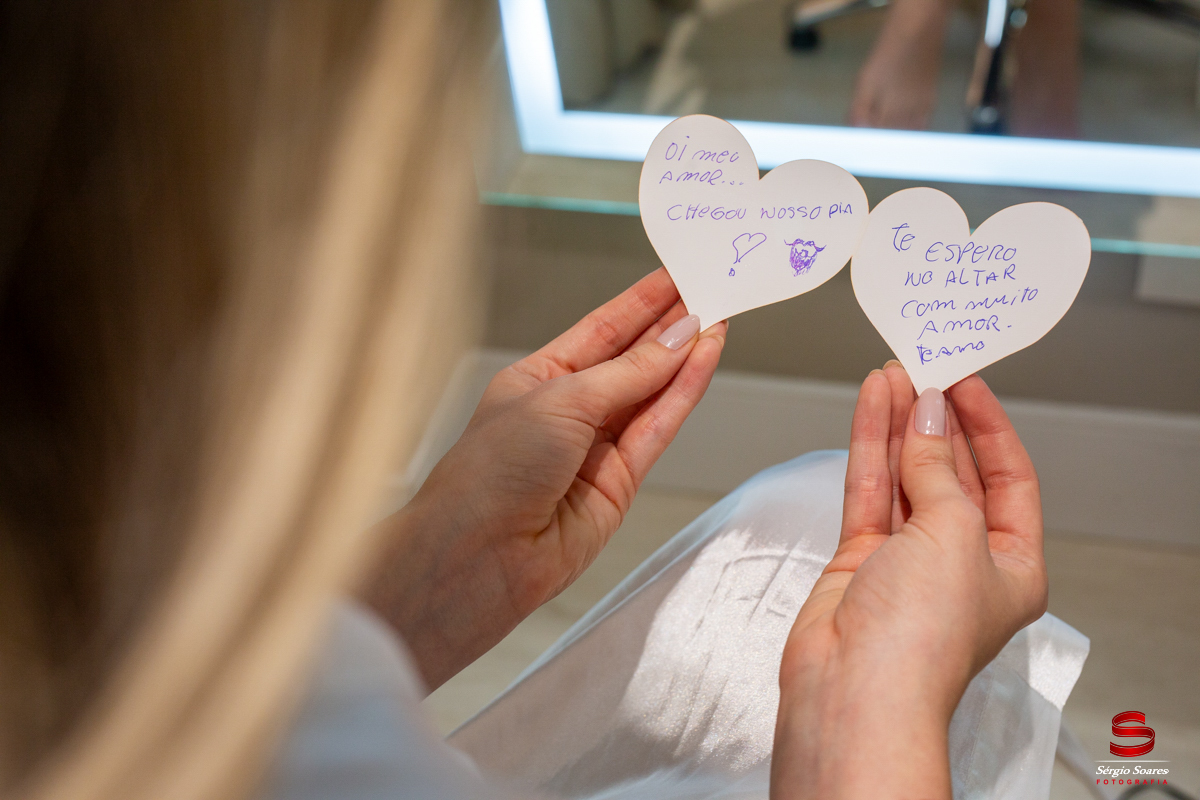 Oi meu
AMOR...
CHEGOU NOSSO DIA
Te ESPERO
NO ALTAR
COM MUITO
AMOR.
Te AMO
S
Sérgio Soares
FOTOGRAFIA